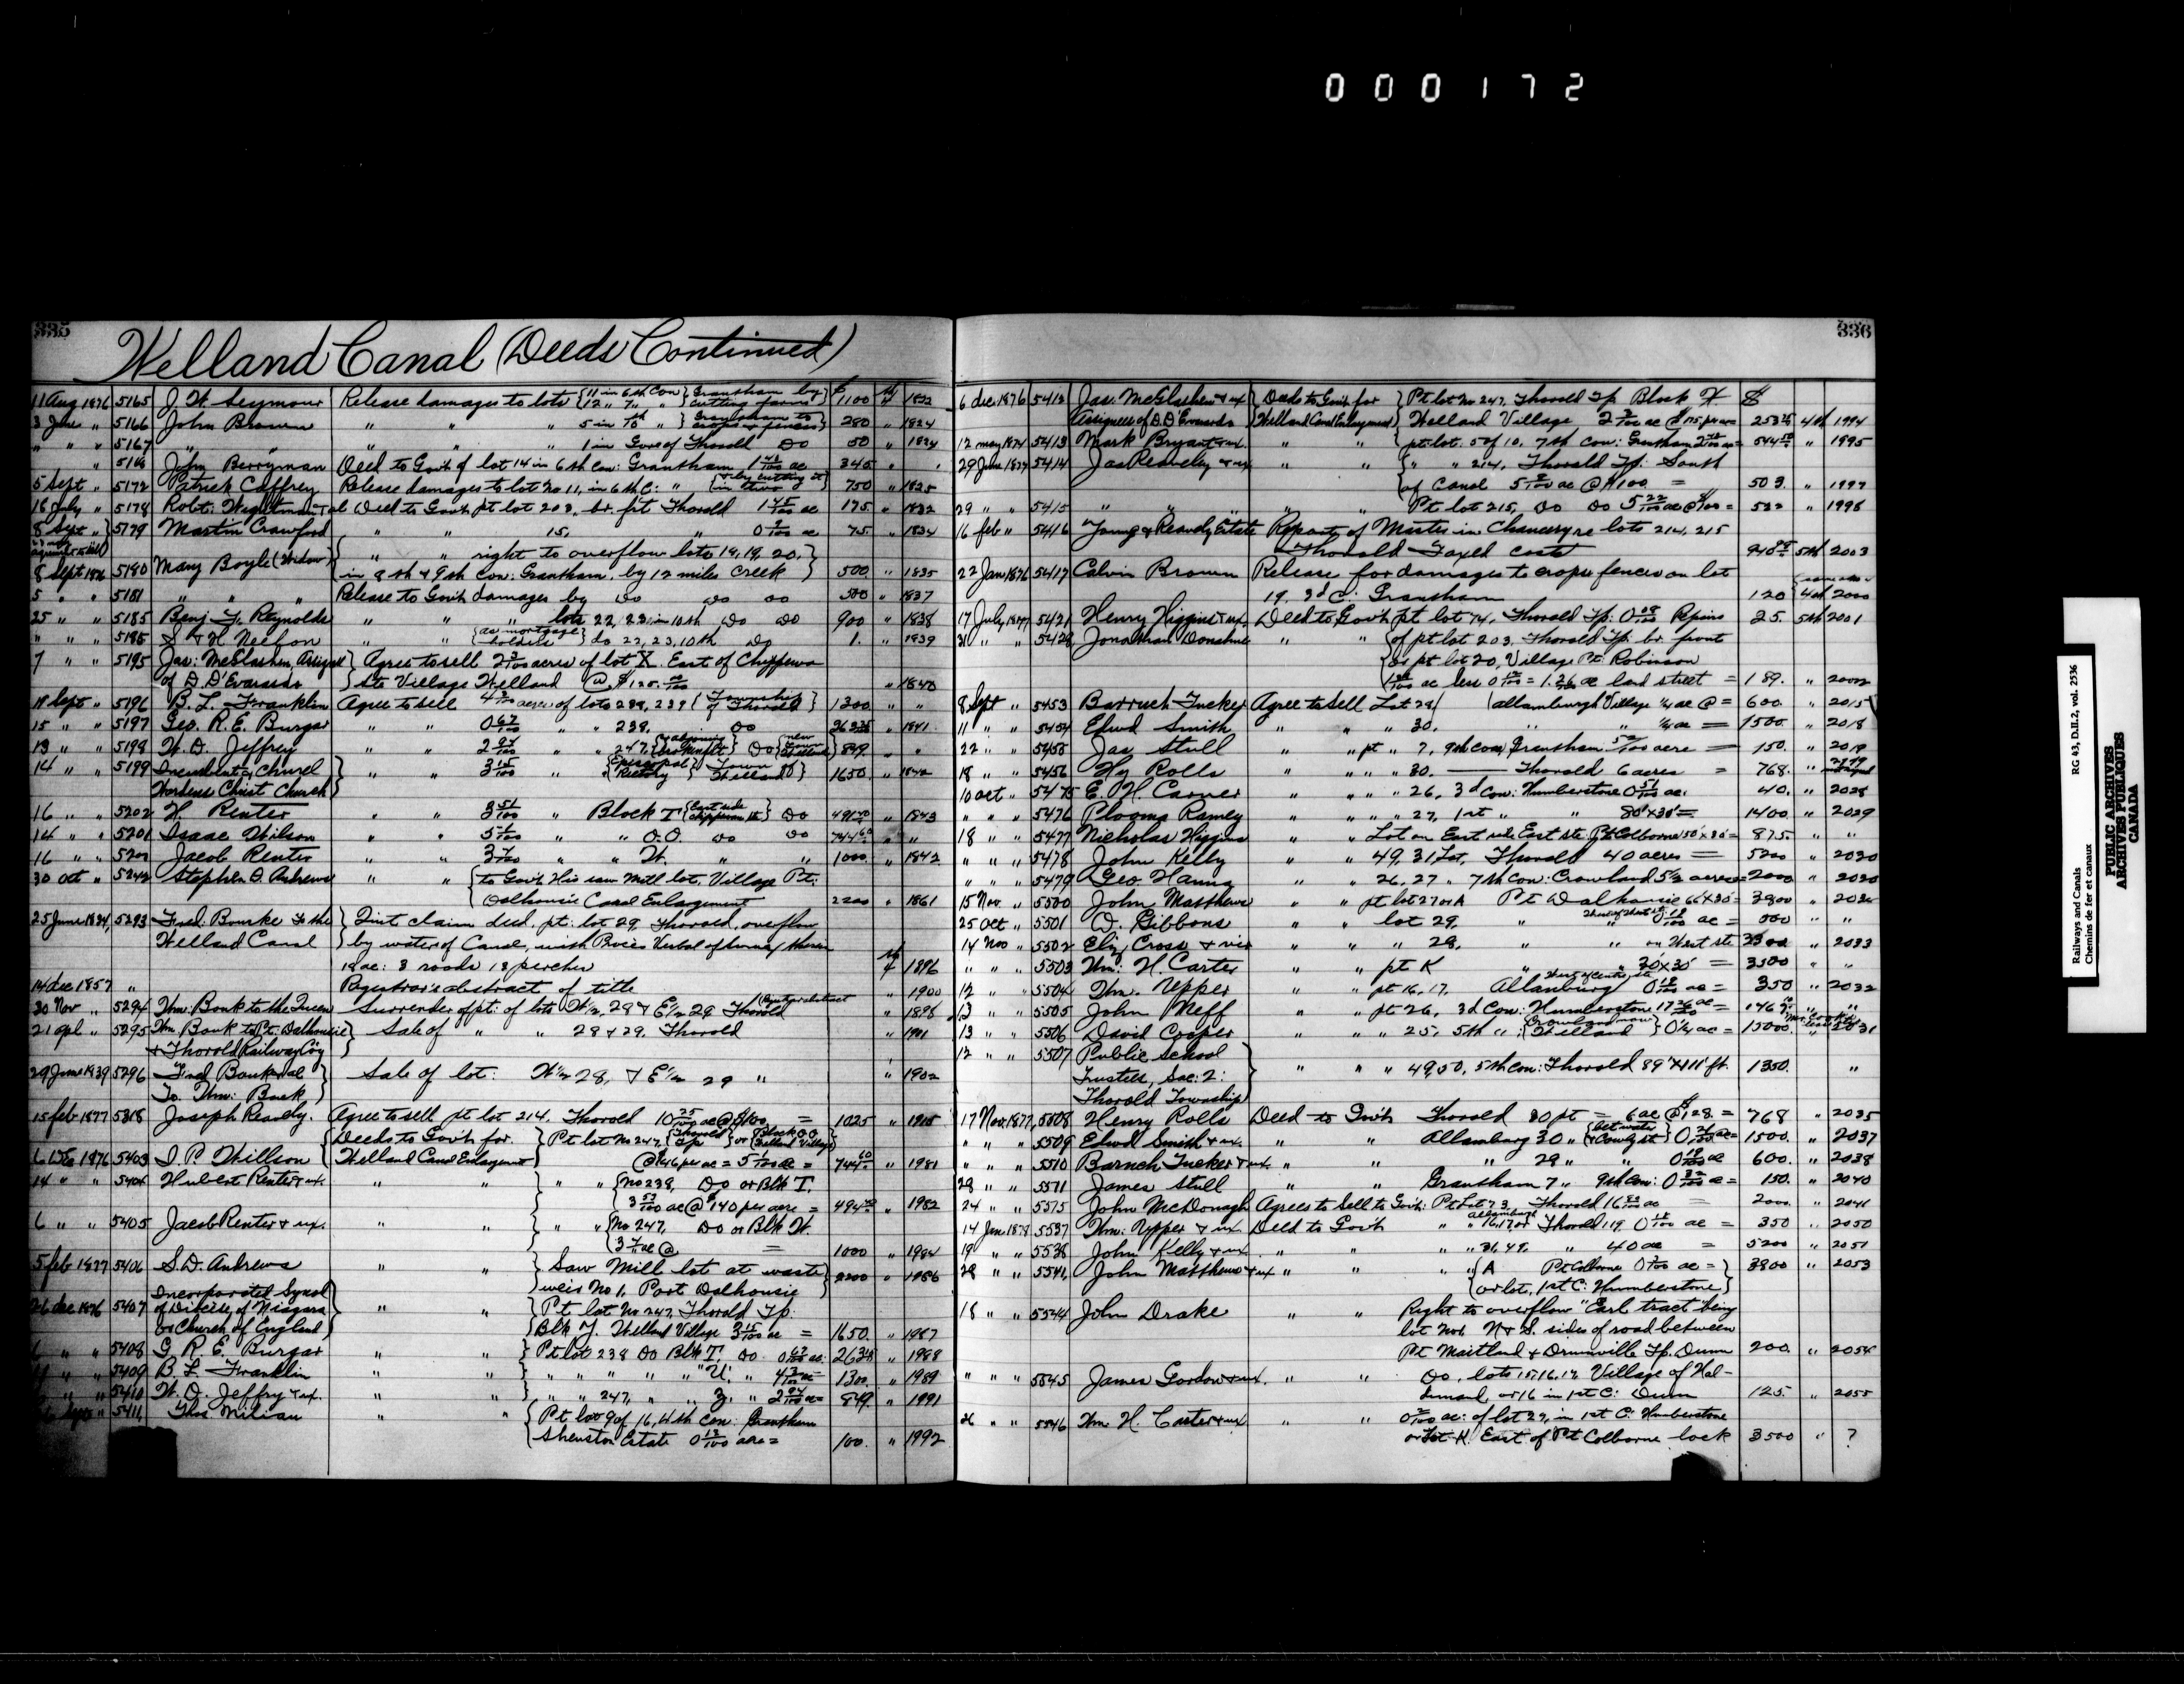 000172
335
Welland Canal (Deeds Continued)
11 Aug 1876 5165 J. W. Seymour Release damages to lots 11 in 6th Con Grantham by $1100 1822
12 " 7 " "
3 June " 5166 John Brown " " " 5 in 10 " Grantham to crops & fences 280 " 1824
" " " 5167 " " " " 1 in Gore of Thorold Do 50 " 1824
" John Berryman Deed to Govt of lot 14 in 6th Con: Grantham 1 ac 345 "
5 Sept " 5172 Patrick Caffrey Release damages to lot No 11, in 6th C: " & by cutting it in two 750 " 1825
18 July " 5178 Robt. Deed to Govt. pt lot 203, br. pt Thorold 1 45/100 ac 175 " 1832
8 Sept " 5179 Martin Crawford " " 15, " ac 75. " 1834
8 Sept 1876 5180 Mary Boyle (Widow) " " right to overflow lots 18, 19, 20,
in 8th & 9th Con: Grantham, by 12 miles creek 500 " 1835
5 " " 5181 " " " Release to Govt damages by Do Do Do 500 " 1837
25 " " 5185 Benj. F. Reynolds " " " lots 22, 23, in 10th Do Do 900 " 1838
" " " " " as mortgage holders do 22, 23, 10th Do 1. " 1839
7 " " 5195 Jas: McGlashen, Assignee Agree to sell acres of lot X. East of Chippewa
of D. D'Everardo Ste Village Welland @ $125. " 1840
18 Sept " 5196 B. L. Franklin Agree to sell acres of lots 238, 239 Township of Thorold 1300 " "
15 " " 5197 Geo. R. E. Burgar " " 0 67/100 " " 238, Do " 1841
13 " " 5198 W. D. Jeffrey " " " " 247, Do 849 " "
14 " " 5199 Incumbent & Church " " 3 15/100 " Episcopal Rectory Town of Welland 1650. " 1842
Wardens Christ Church
16 " " 5202 H. Renter " " " Block T East side Chippewa St Do " 1843
14 " " 5201 Isaac Wilson " " " " O.O. Do Do 744 60 " "
16 " " 5200 Jacob Renter " " " " W. " " 1000. " 1842
30 Oct " 5242 Stephen D. Andrews " " to Govt His saw Mill lot, Village Pt:
Dalhousie Canal Enlargement 2200 " 1861
25 June 5293 Fred. Bourke to the Quit claim deed, pt: lot 29, Thorold, overflow
Welland Canal by water of Canal, with Procès Verbal of
18 ac: 3 roods 18 perches 1896
14 Dec 1857 " Registrar's abstract of title " 1900
30 Nov " 5294 Wm: Bouk to the Queen Surrender of pt: of lots W½, 28 & E½ 29 Thorold " 1896
21 Apl " 5295 Wm Bouk to Pt. Dalhousie Sale of " " 28 & 29, Thorold " 1901
& Thorold Railway Coy
29 June 1839 5296 Fred Bouk et al Sale of lot: W½ 28, & E½ 29 " " 1902
To Wm: Bouk
15 Feb 1877 5318 Joseph Reavly. Agree to sell pt lot 214, Thorold 10 25/100 ac @ $100 = 1025 " 1915
Deeds to Govt for Pt lot No 247, Thorold Tp or Block OO Welland Village
6 Dec 1876 5403 I. P. Willson Welland Canal Enlargement @ $146 per ac = = 744 60 " 1981
14 " " 5404 Hubert Renter & ux. " " " " No 238, Do or Blk T.
ac @ $140 per acre = " 1982
6 " " 5405 Jacob Renter & ux. " " " " No 247, Do or Blk W.
ac @ = 1000 " 1984
5 Feb 1877 5406 S. D. Andrews " " Saw Mill lot at waste 2200 " 1986
weir No 1, Port Dalhousie
Incorporated Synod
26 Dec 1876 5407 of Diocese, of Niagara " " Pt lot No 247, Thorold Tp.
or Church of England Blk Y. Welland Village 3 15/100 ac = 1650. " 1987
" " 5408 G. R. E. Burgar " " Pt lot 238 Do Blk T. Do 0 67/100 ac. " 1988
" " 5409 B. L. Franklin " " " " " " "U", " = 1300. " 1989
" " 5410 W. D. Jeffry & ux. " " " " 247, " " Z, " = 849. " 1991
5411 Thos Milian " " Pt lot 9 of 16, 4th Con: Grantham
Shenston Estate acre = 100. " 1992
336
6 Dec 1876 5412 Jas. McGlashen & ux Deeds to Govt for Pt lot No 247, Thorold Tp Block X $
Assignees of D. D'Everardo Welland Canal Enlargement Welland Village ac @ $125 pr ac = 4th 1994
12 May 5413 Mark Bryant & ux. " " pt: lot. 5 of 10, 7th Con: Grantham = " 1995
29 June 1877 5414 Jas Reavely & ux " " " " 214, Thorold Tp: South
of Canal ac @ $100 = 503. " 1997
29 " " 5415 " " " " " Pt lot 215, Do Do 5 22/100 ac @ $100 = 522 " 1996
16 Feb " 5416 Young & Reavely Estate Report of Master in Chancery re lots 214, 215
Thorold Taxed costs 5th 2003
22 Jan 1876 5417 Calvin Brown Release for damages to crops fences on lot
19, 3d C: Grantham 120 4th 2000
17 July 1877 5421 Henry Higgins & ux. Deed to Govt pt lot 74, Thorold Tp: 0 08/100 25. 5th 2001
31 " " 5428 Jonathan Donohue " " of pt lot 203, Thorold Tp: br. front
or pt lot 20, Village Pt. Robinson
ac less = 1.26 ac land street = 189. " 2002
8 Sept " 5453 Barruch Tucker Agree to Sell Lot 29 allanburgh Village ¼ ac @ = 600. " 2015
11 " " 5454 Edwd Smith " " " 30. " " ¼ ac = 1500. " 2018
22 " " 5455 Jas Stull " " pt " 7, 9th Con, Grantham acre = 150. " 2019
18 " " 5456 Hy Rolls " " " " 30. Thorold 6 acres = 768. "
10 Oct " 5475 E. H. Carver " " " " 26, 3d Con: Humberstone 0 51/100 ac. 40. " 2028
" " " 5476 Plooma Ramey " " " " 27, 1st " " 80'x30' = 1400. " 2029
18 " " 5477 Nicholas Higgins " " Lot on East side East ste. Pt Colborne = 875. " "
" " " 5478 John Kelly " " 49, 31 Lot, Thorold 40 acres = 5200 " 2030
" " " 5479 Geo Hanna " " 26. 27 " 7th Con: Crowland 5½ acres = 2000 " 2030
15 Nov. " 5500 John Matthews " " pt lot 27 or A Pt Dalhousie 66'x30' = 3900 "
25 Oct " 5501 D. Gibbons " " lot 29, " ac = 500 " "
14 Nov " 5502 Eliz. Cross " " " 28, " " on West ste " 2033
" " " 5503 Wm: H. Carter " " pt K " 30'x30' = 3500 " "
12 " " 5504 Wm. Upper " " pt 16, 17. Allanburg ac = 350 " 2032
13 " " 5505 John Neff " " pt 26, 3d Con: Humberstone ac = " "
13 " " 5506 David Cooper " " " 25, 5th " : Crowland now Welland 0¼ ac = 15000. " 2031
12 " " 5507 Public School
Trustees, Sec: 2: " " " 49, 50, 5th Con: Thorold 89'x111' ft. 1350. "
Thorold Township
17 Nov. 1877 5508 Henry Rolls Deed to Govt Thorold 30 pt = 6 ac @ $128 = 768 " 2035
" " " 5509 Edwd Smith & ux. " " Allanburg 30 " = 1500. " 2037
" " " 5510 Baruch Tucker & ux. " " " 29 " " ac 600. " 2038
28 " " 5571 James Stull " " Grantham 7 " 9th Con: ac = 150. " 2040
24 " " 5575 John McDonagh Agrees to Sell to Govt: Pt Lot 73 Thorold ac = 2000. " 2041
14 Jan 1878 5537 Wm: Upper & ux Deed to Govt " " 16, 17 or Thorold 119. ac = 350 " 2050
19 " " 5538 John Kelly & ux. " " " " 31, 49, " 40 ac = 5200 " 2051
28 " " 5541 John Matthews & ux " " " " A Pt Colborne ac = 3900 " 2053
or lot, 1st C: Humberstone
18 " " 5544 John Drake " " Right to overflow "Earl tract" being
lot No 1 N & S. sides of road between
Pt Maitland & Dunnville Tp. Dunn 200. " 2054
" " " 5545 James Gordon & ux. " " Do. lots 15, 16, 17. Village of Hal-
dimand, or 16 in 1st C: Dunn 125. " 2055
26 " " 5546 Wm. H. Carter & ux " " ac: of lot 27, in 1st C: Humberstone
or Lot K. East of Pt Colborne lock 3500 " ?
Railways and Canals RG 43, D.II.2, vol. 2536
Chemins de fer et canaux
PUBLIC ARCHIVES
ARCHIVES PUBLIQUES
CANADA